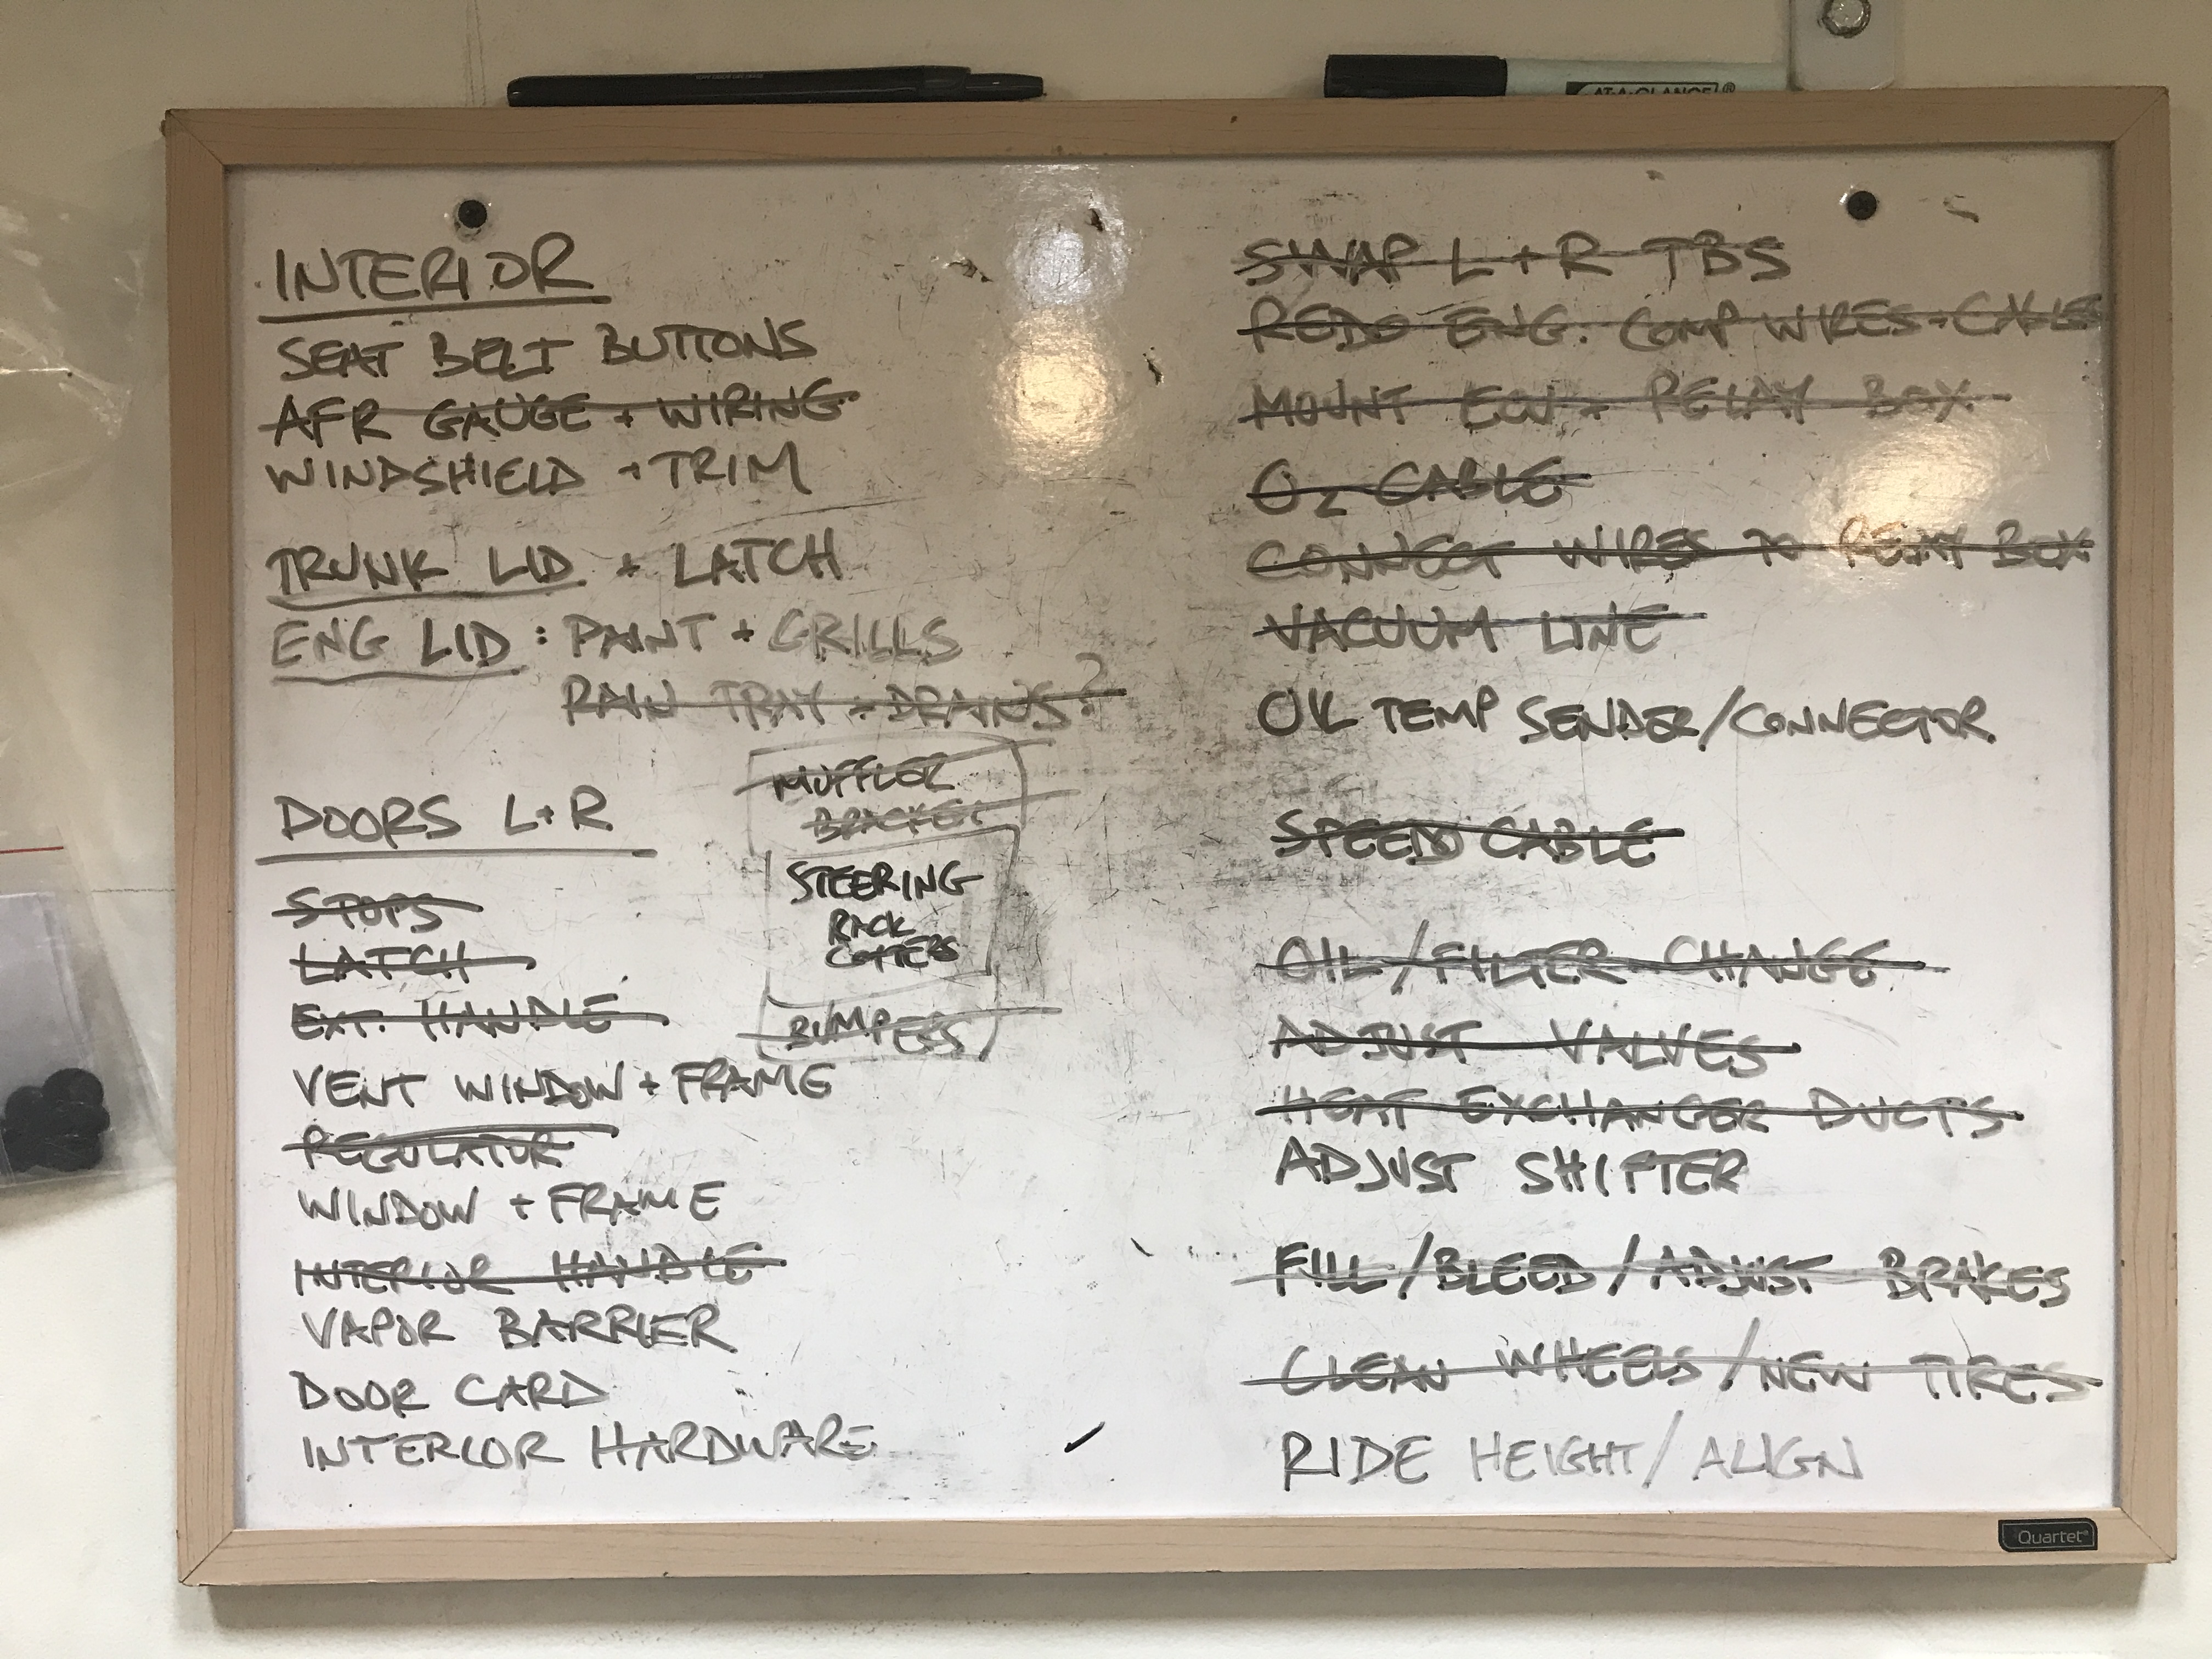 AT-A-GLANCE®
INTERIOR
SEAT BELT BUTTONS
AFR GAUGE + WIRING
WINDSHIELD + TRIM
TRUNK LID + LATCH
ENG LID : PAINT + GRILLS
RAIN TRAY + DRAINS?
MUFFLER
BRACKET
STEERING
RACK
BUMPERS
DOORS L+R
STOPS
LATCH
EXT. HANDLE
VENT WINDOW + FRAME
REGULATOR
WINDOW + FRAME
INTERIOR HANDLE
VAPOR BARRIER
DOOR CARD
INTERIOR HARDWARE
SWAP L + R TBS
REDO ENG. COMP WIRES + CABLES
MOUNT ECU + RELAY BOX
O2 CABLE
CONNECT WIRES TO RELAY BOX
VACUUM LINE
OIL TEMP SENDER/CONNECTOR
SPEEDO CABLE
OIL/FILTER CHANGE
ADJUST VALVES
HEAT EXCHANGER DUCTS
ADJUST SHIFTER
FILL/BLEED/ADJUST BRAKES
CLEAN WHEELS/NEW TIRES
RIDE HEIGHT/ALIGN
Quartet